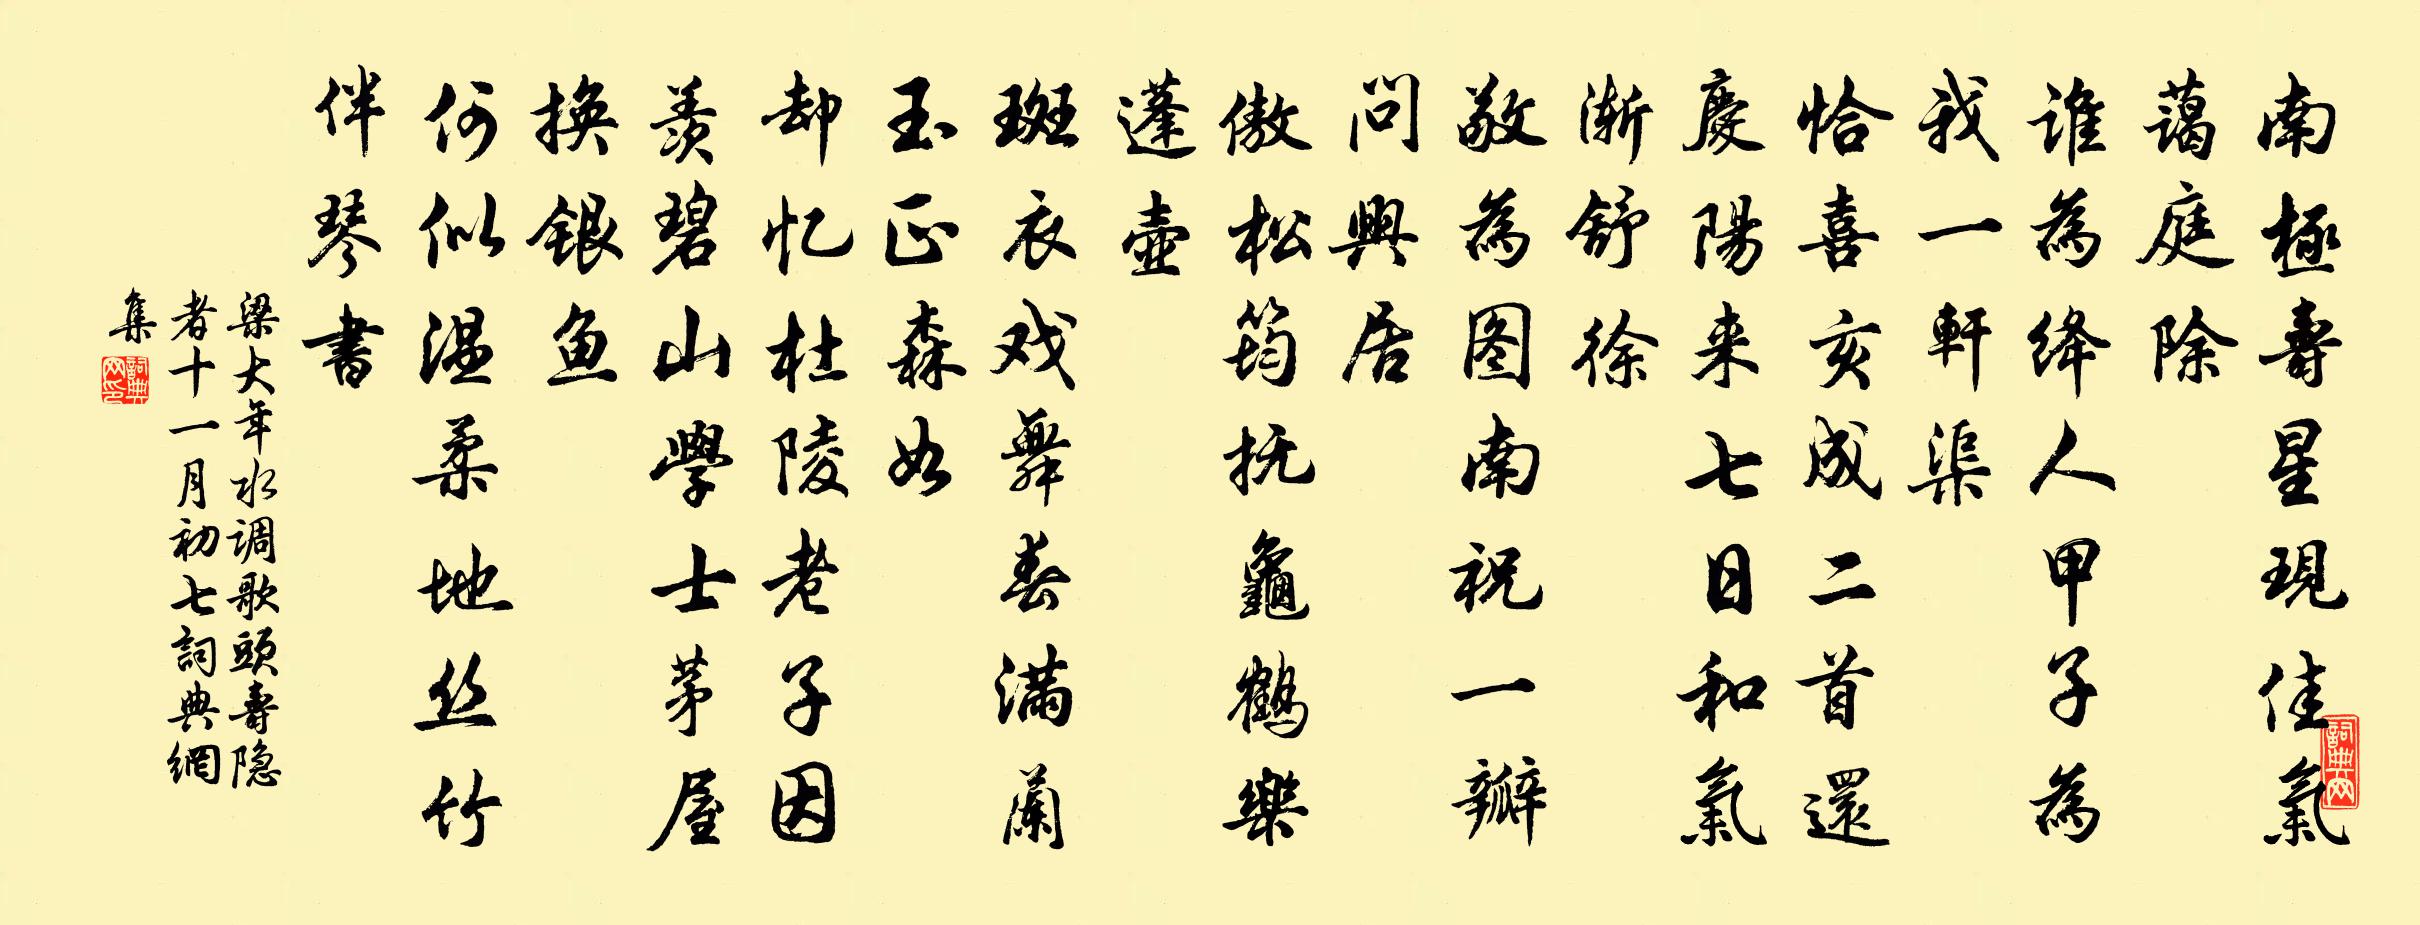 南極壽星現佳氣
藹庭除
誰為绛人甲子為
我一軒渠
恰喜亥成二首還
慶陽来七日和氣
渐舒徐
敬為图南祝一瓣
問興居
傲松筠抚龜鶴樂
蓬壺
斑衣戏舞春滿蘭
玉正森如
却忆杜陵老子因
羨碧山學士茅屋
換銀魚
何似温柔地丝竹
伴琴書
梁大年水调歌頭壽隐
者十一月初七詞典網
集
詞典網
詞典網印